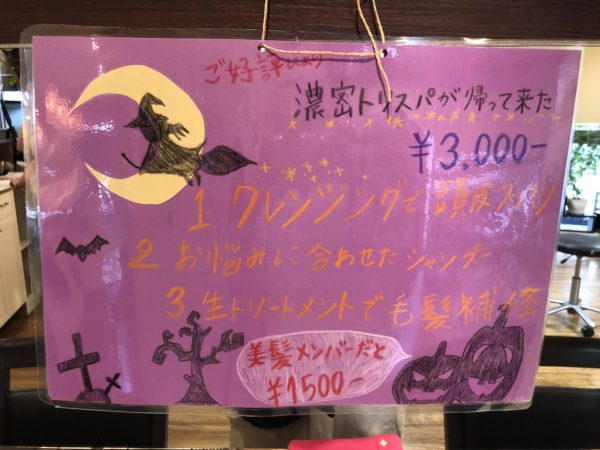 ご好評により
濃密トリスパが帰って来た
¥3,000-
1 クレンジングで頭皮スッキリ
2 お悩みに合わせたシャンプー
3. 生トリートメントで毛髪補修
美髪メンバーだと
¥1500-